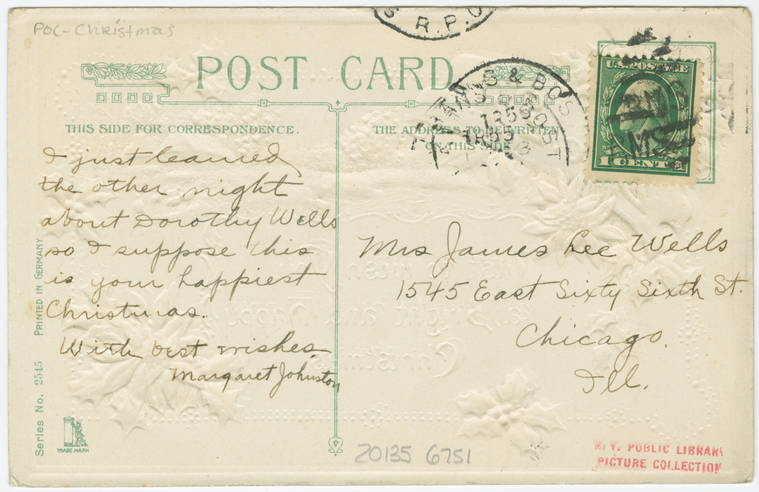 POC- Christmas
S R.P.O
POST CARD
& BOS
1353
POST
U.S. POSTAGE
1 CENT
THIS SIDE FOR CORRESPONDENCE.
THE ADDRESS TO BE WRITTEN
ON THIS SIDE
I just learned
the other night
about Dorothy Wells
so I suppose this
is your happiest
Christmas.
With best wishes
Margaret Johnston
Mrs James Lee Wells
1545 East Sixty Sixth St.
Chicago.
Ill.
PRINTED IN GERMANY
Series No. 2545
TRADE MARK
20135 6751
N. Y. PUBLIC LIBRARY
PICTURE COLLECTION